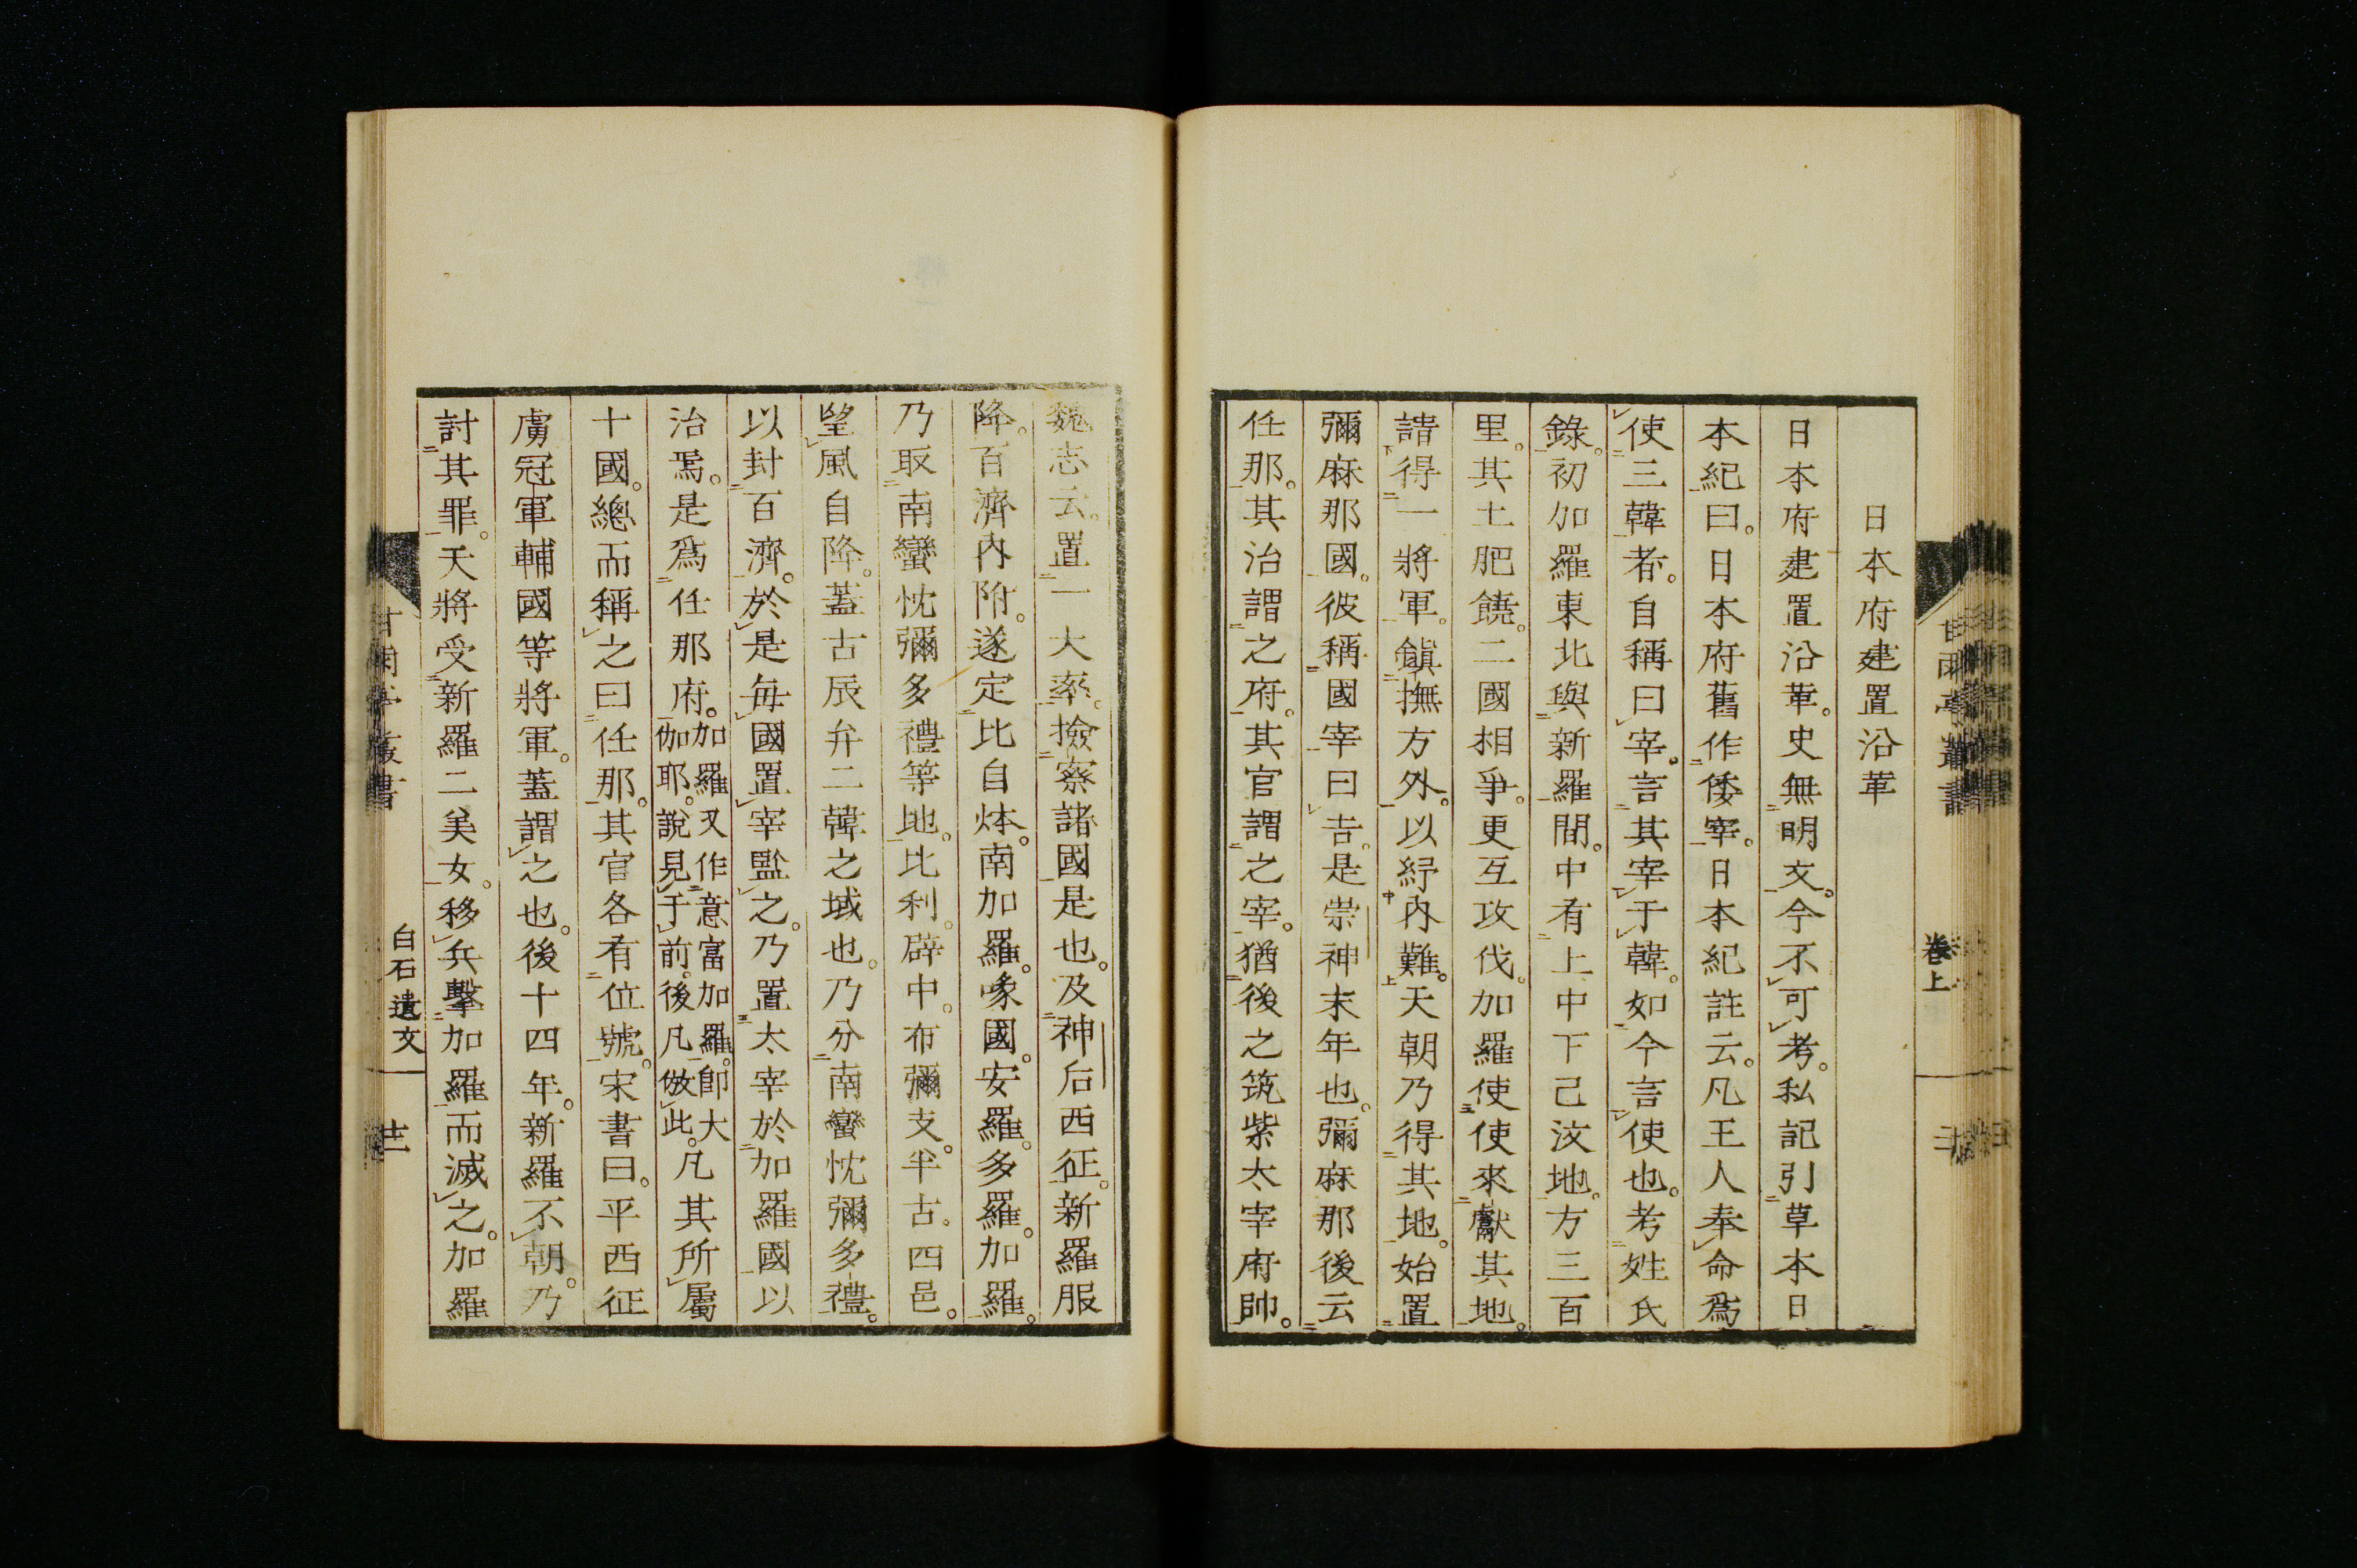 日本府建置沿革
日本府建置沿革。史無明文。今不可考。私記引草本日
本紀曰。日本府舊作倭宰。日本紀註云。凡王人奉命爲
使三韓者。自稱曰宰。言其宰于韓。如今言使也。考姓氏
錄。初加羅東北與新羅間。中有上中下己汶地。方三百
里。其土肥饒。二國相爭。更互攻伐。加羅使使來獻其地。
請得一將軍。鎭撫方外。以紓內難。天朝乃得其地。始置
彌麻那國。彼稱國宰曰吉。是崇神末年也。彌麻那後云
任那。其治謂之府。其官謂之宰。猶後之筑紫太宰府帥。
魏志云。置一大率。撿察諸國是也。及神后西征。新羅服
降。百濟內附。遂定比自㶱。南加羅。㖨國。安羅。多羅。加羅。
乃取南蠻忱彌多禮等地。比利。辟中。布彌支。半古。四邑。
望風自降。蓋古辰弁二韓之域也。乃分南蠻忱彌多禮。
以封百濟。於是毎國置宰監之。乃置太宰於加羅國以
治焉。是爲任那府。加羅又作意富加羅。卽大伽耶。說見于前。後凡倣此。凡其所屬
十國。總而稱之曰任那。其官各有位號。宋書曰。平西征
虜冠軍輔國等將軍。蓋謂之也。後十四年。新羅不朝。乃
討其罪。天將受新羅二美女。移兵擊加羅而滅之。加羅
甘雨亭叢書
卷上
白石遺文